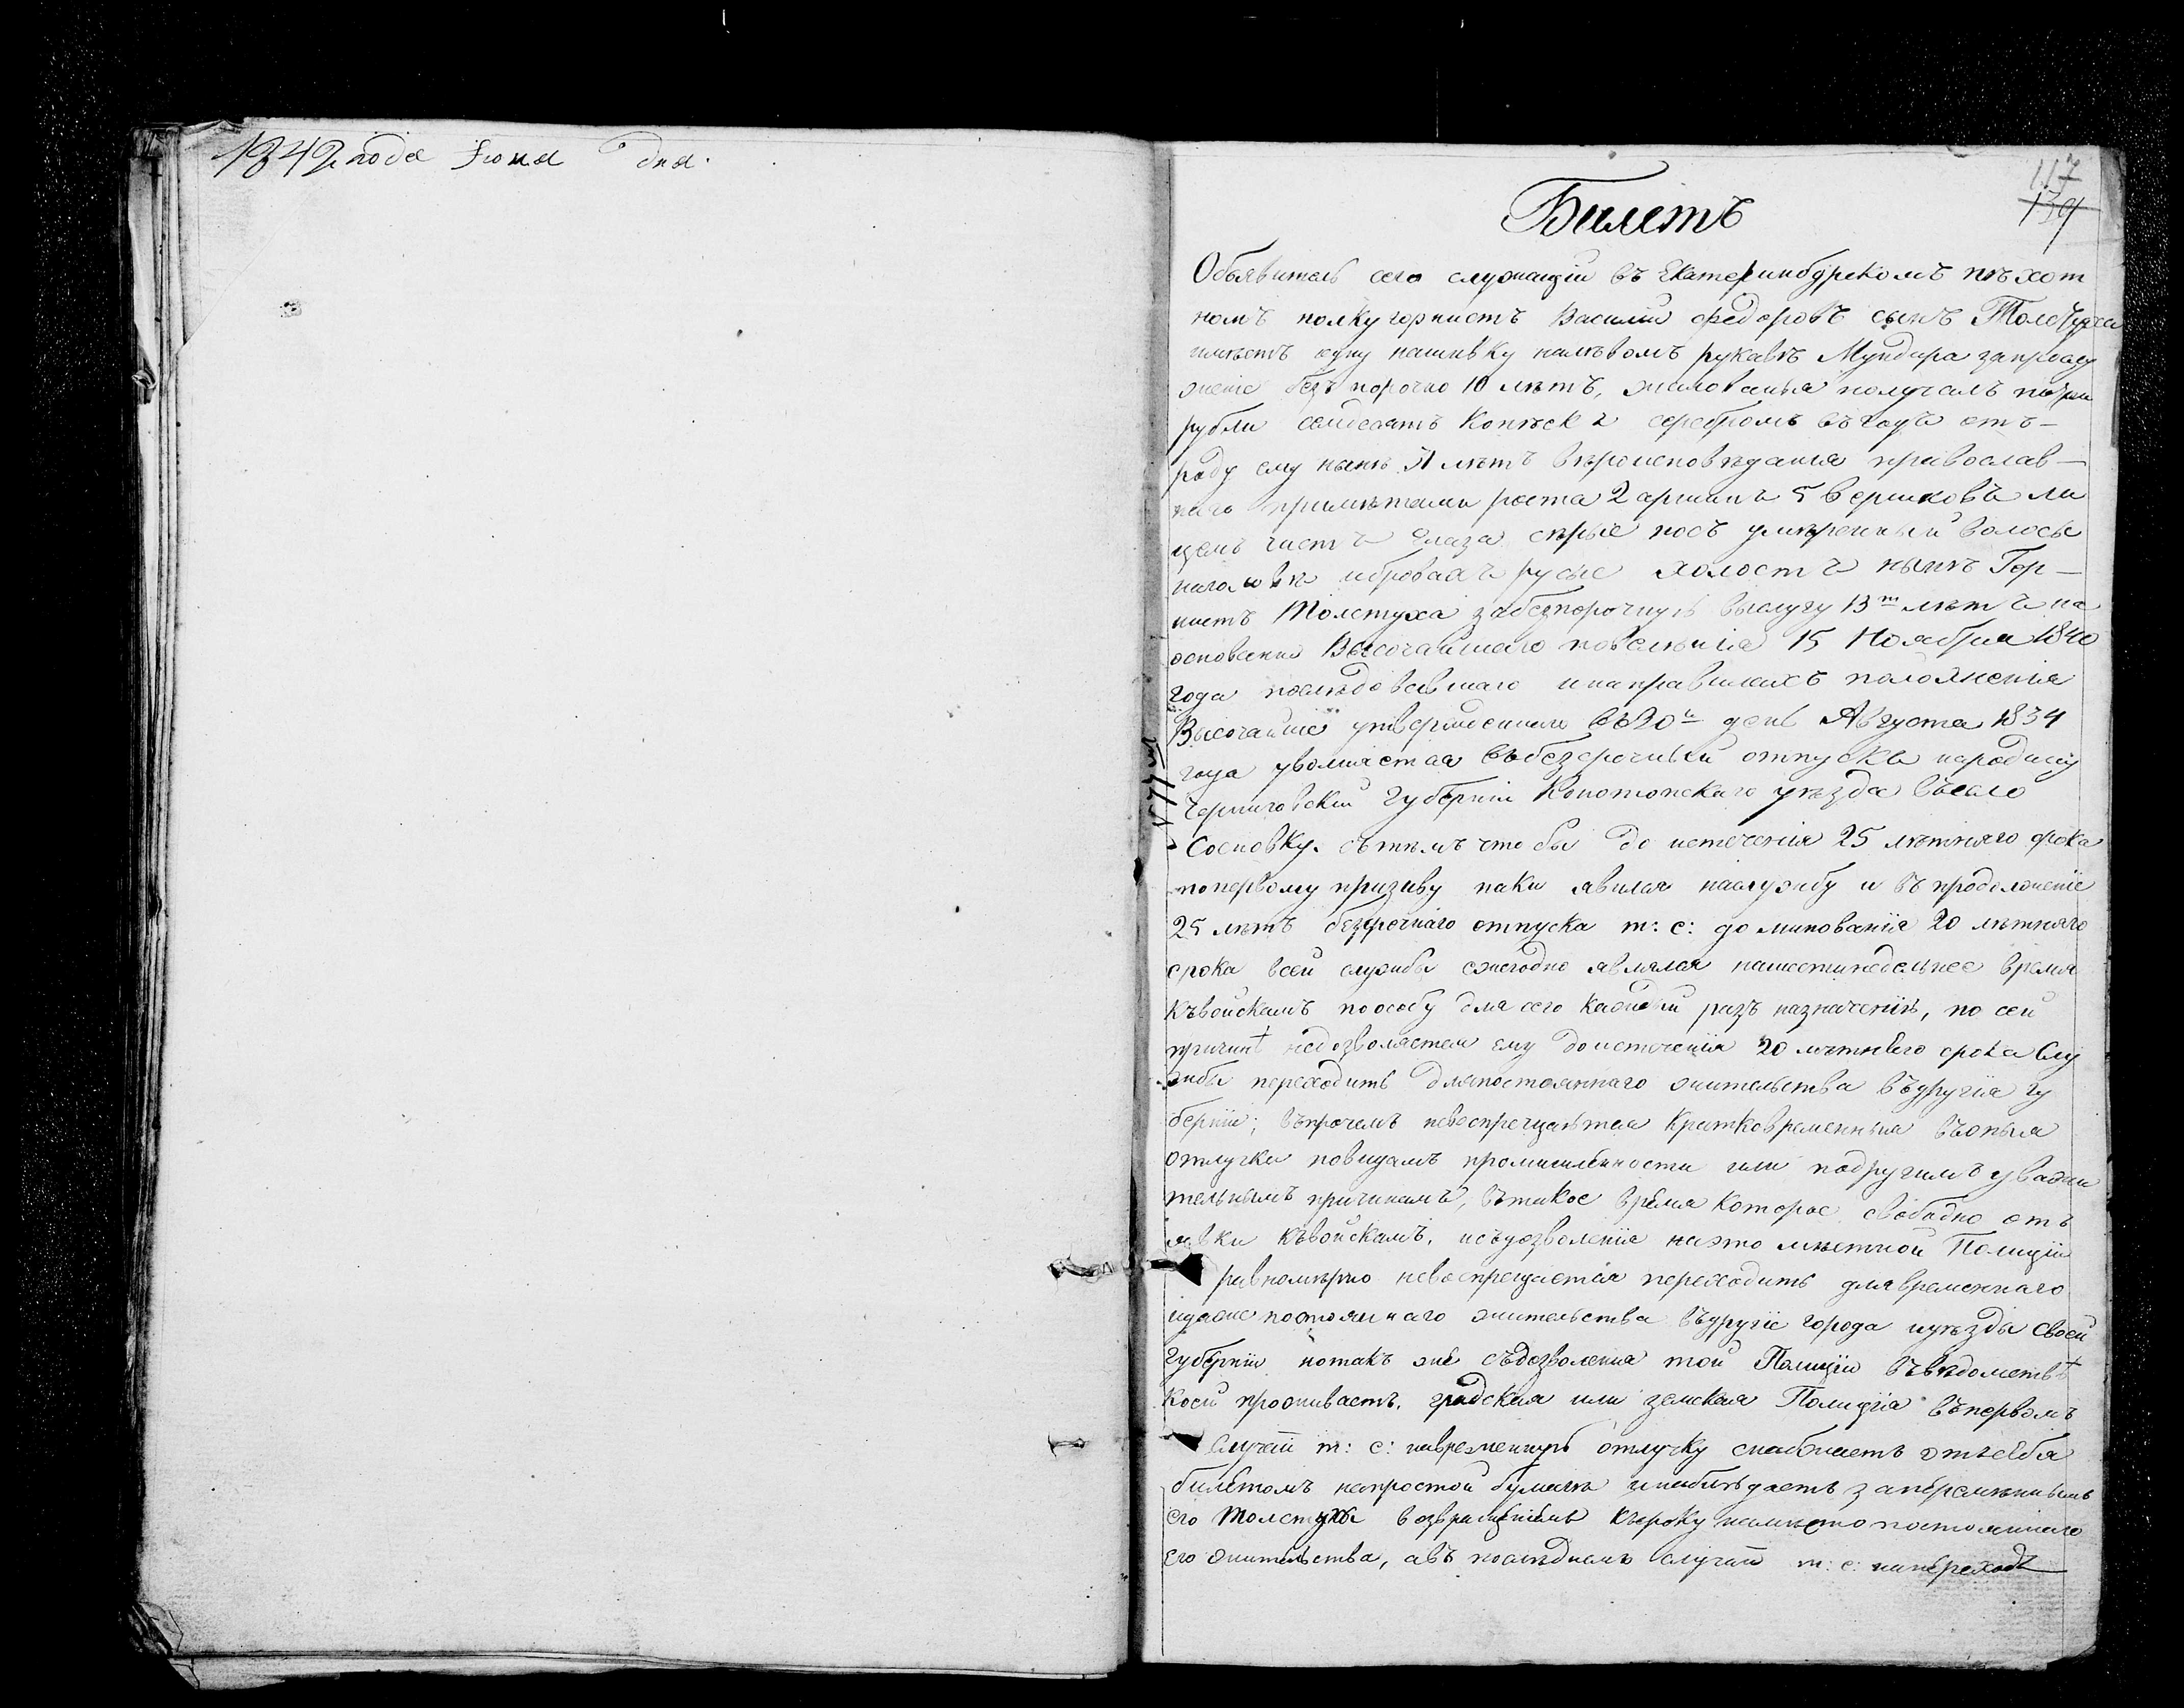 1842 года Iюня дня.
117
139
Билетъ
Объявитель сего служащiй въ Екатеринбурскомъ пѣхот
номъ полку горнистъ Василiй Федоровъ сынъ Толстуха
имѣетъ одну нашивку налѣвомъ рукавѣ Мундира запрослу
женiе безъ порочно 10 лѣтъ, жалованья получалъ потри
рубли семдесятъ Копѣекъ серебромъ въ годъ отъ-
роду ему нынѣ 31 лѣтъ вѣроисповѣданiя православ-
наго примѣтами роста 2 аршинъ 5 вершковъ ли
цемъ чистъ глаза сѣрые носъ умѣренный волосы
наголовѣ ибровахъ русые холостъ нынѣ Гор-
нистъ Толстуха забезпорочную выслугу 13ти лѣтъ на
основанiи Высочайшаго повелѣнiя 15 Ноября 1840
года послѣдовавшаго инаправилахъ положенiя
Высочайше утвержденнаго въ 20й день Августа 1834
года увольняется въбезсрочный отпускъ народину
Черниговской Губернiи Конотопскаго уѣзда въсело
Сосновку. сътѣмъ чтобы до истеченiя 25 лѣтняго срока
поперьвому призыву паки явился наслужбу и въ продолженiе
25 лѣтъ безсрочнаго отпуска т: е: до минованiя 20 лѣтняго
срока всей службы ежегодно являлся нашестинедельнее время
къвойскамъ поособу для сего каждый разъ назначенiю, по сей
причинѣ недозволяется ему доистеченiя 20 лѣтняго срока Слу
жбы переходить дляпостояннаго жительства въдругiя гу
бернiи; въпрочемъ невоспрещается Кратковременныя въоныя
отлучки повидамъ промышленности или подругимъ уважи
тельнымъ причинамъ, втакое время которое свободно отъ
явки къвойскамъ, исъдозволенiя наэто мѣстной Полицiи
равномѣрно невоспрещается переходить длявременнаго
идаже постояннаго жительства въдругiе города иуѣзды своей
Губернiи нотакъ же съдозволенiя той Полицiи въвѣдомствѣ
коей проживаетъ. градская или земская Полицiя въпервомъ
Случаѣ т: е: навременную отлучку снабжаетъ отъсебя
билетомъ напростой бумагѣ инаблюдаетъ
его Толстухи возвращенiемъ къ сроку намѣсто постояннаго
его жительства, авъ послѣднемъ случаѣ т: е: напереходъ